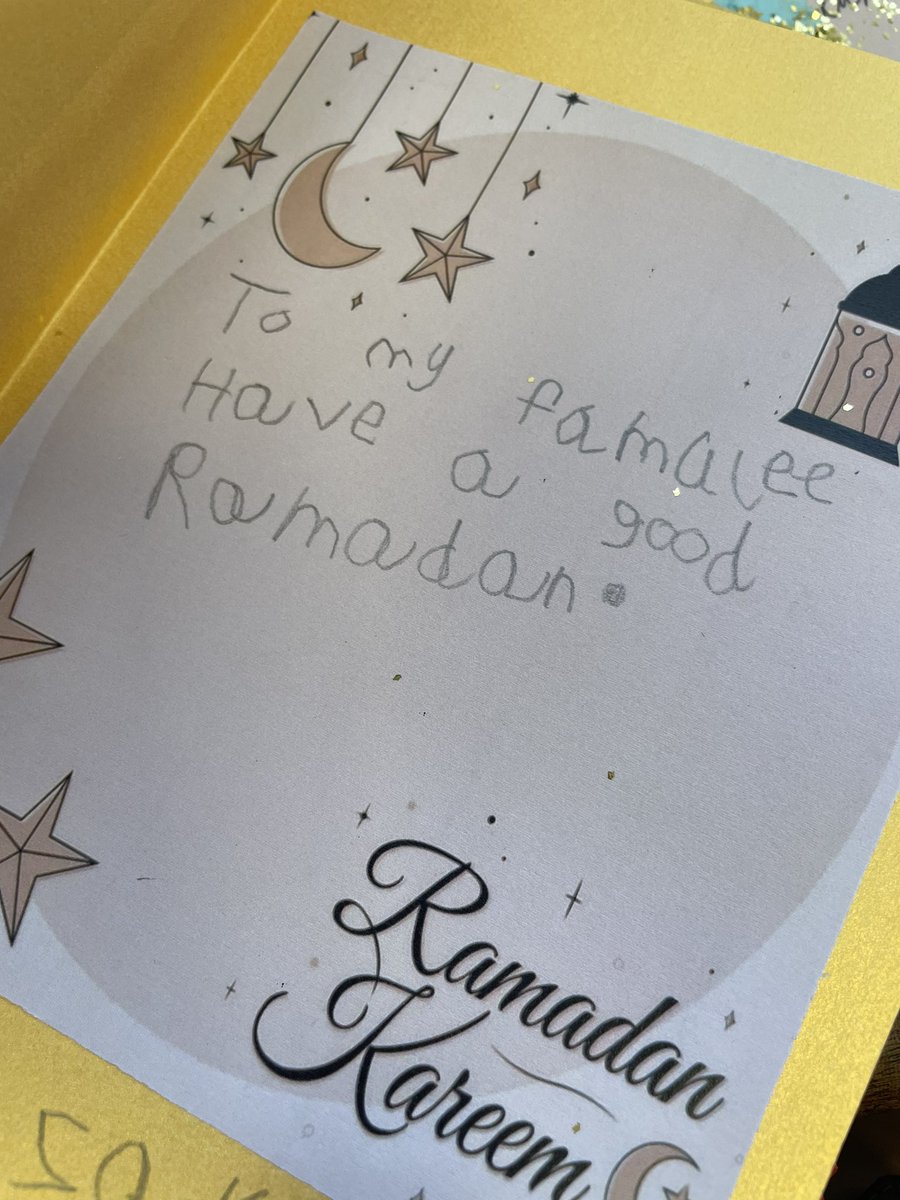 To my famalee
Have a good
Ramadan.
Ramadan
Kareem